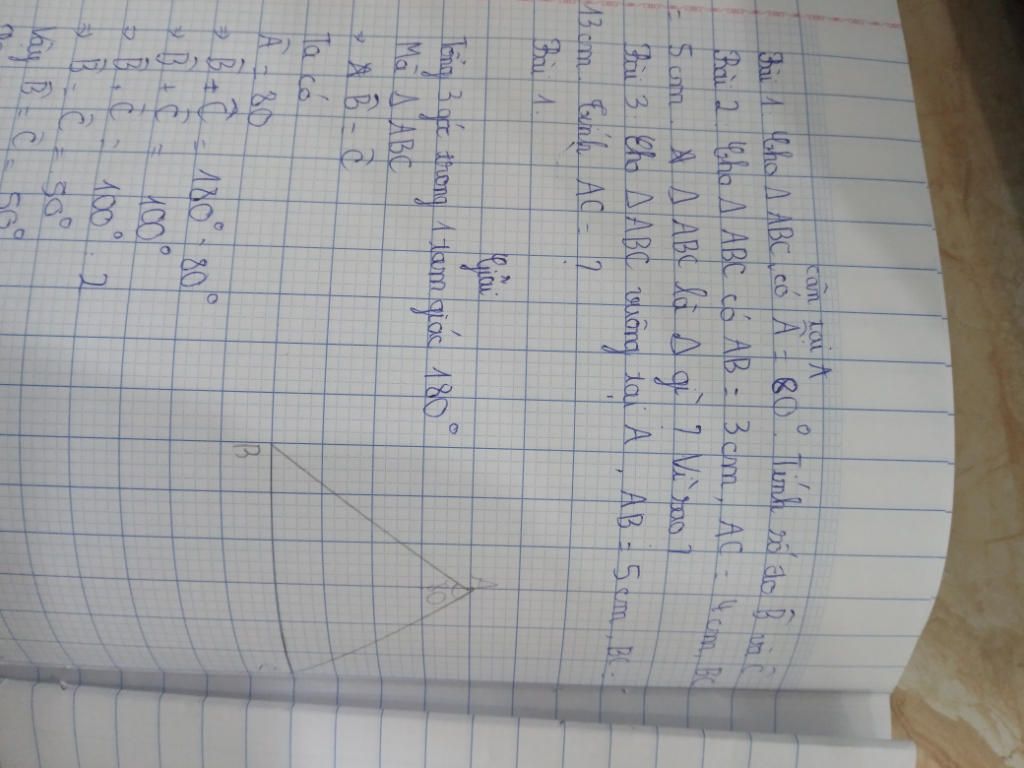 cân tại A
Bài 1. Cho Δ ABC có Â = 80°. Tính số đo B̂ và Ĉ
Bài 2. Cho Δ ABC có AB = 3cm, AC = 4cm, BC
= 5cm. Δ ABC là Δ gì? Vì sao?
Bài 3. Cho Δ ABC vuông tại A, AB = 5cm, BC =
13cm. Tính AC = ?
Bài 1.
Giải
Tổng 3 góc trong 1 tam giác 180°
Mà Δ ABC
⇒ B̂ = Ĉ
Ta có
Â = 80
⇒ B̂ + Ĉ = 180° - 80°
⇒ B̂ + Ĉ = 100°
⇒ B̂ + Ĉ = 100° : 2
⇒ B̂ = Ĉ = 50°
Vậy B̂ = Ĉ = 50°
A
80
B
C